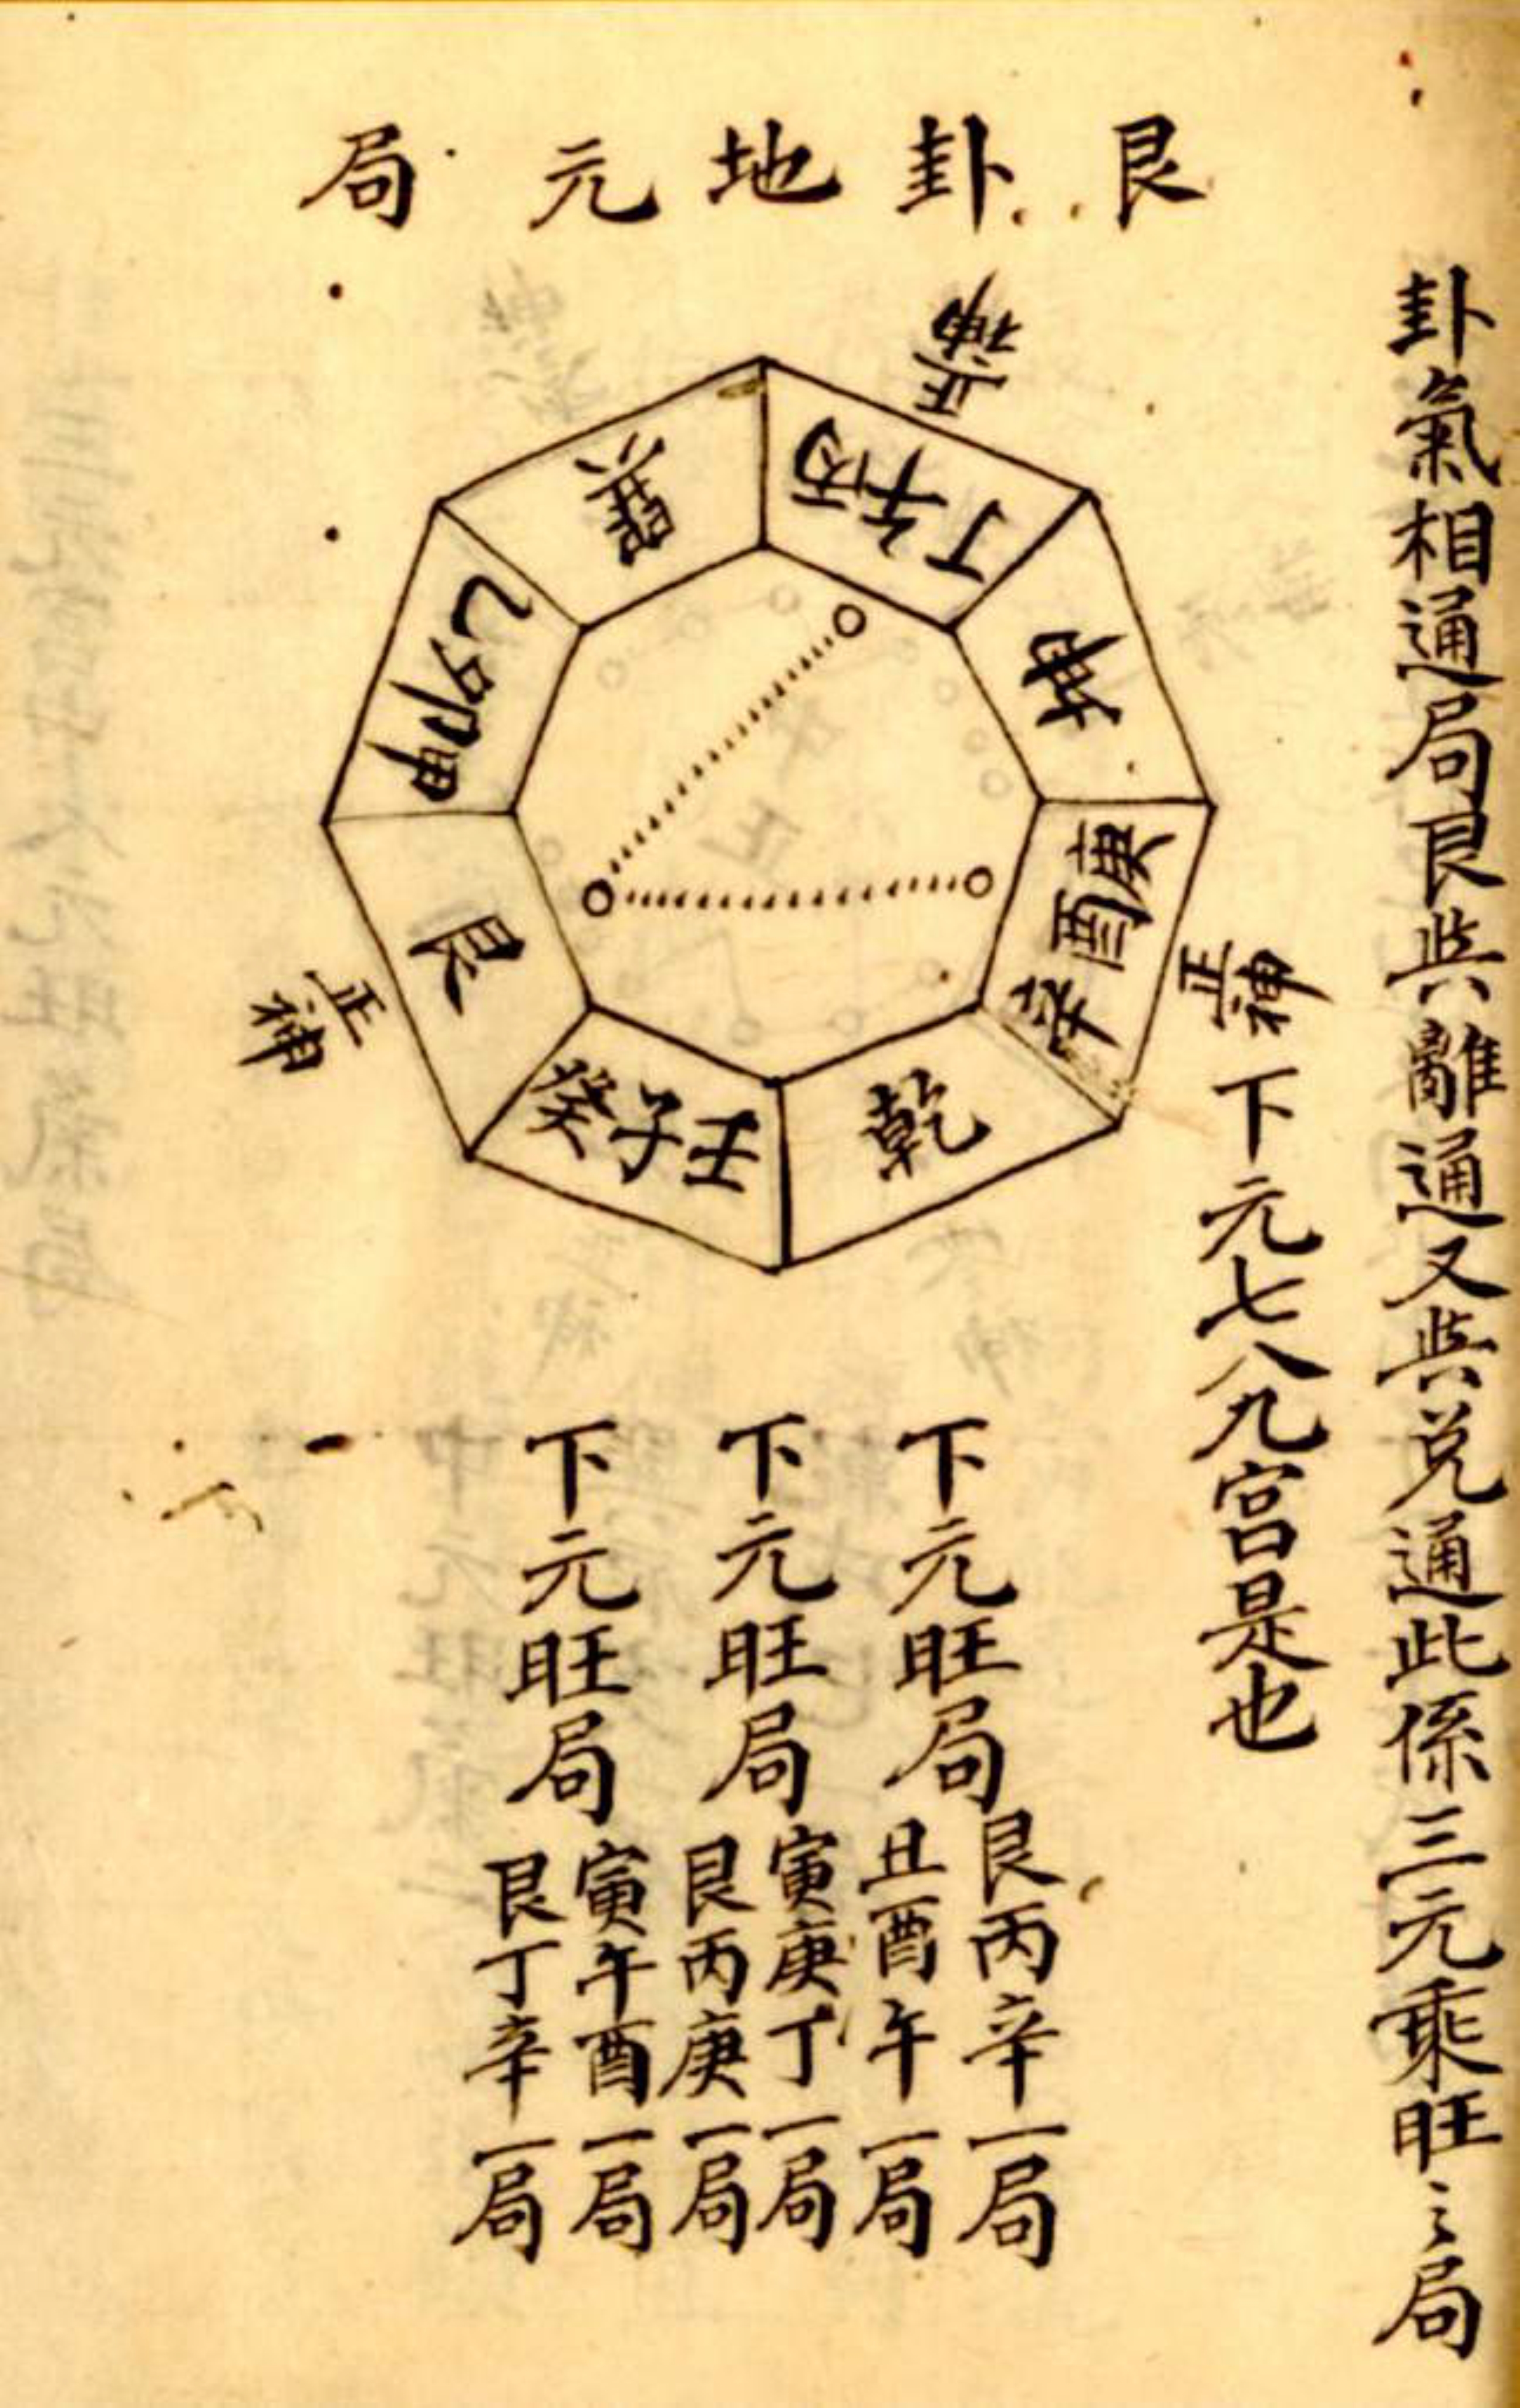 卦氣相通局艮與離通又與兌通此係三元乘旺之局
下元七八九宮是也
艮卦地元局
正神
丙午丁
坤
庚酉辛
正神
乾
壬子癸
艮
正神
甲卯乙
巽
下元旺局
艮丙辛一局
丑酉午一局
下元旺局
寅庚丁一局
艮丙庚一局
下元旺局
寅午酉一局
艮丁辛一局